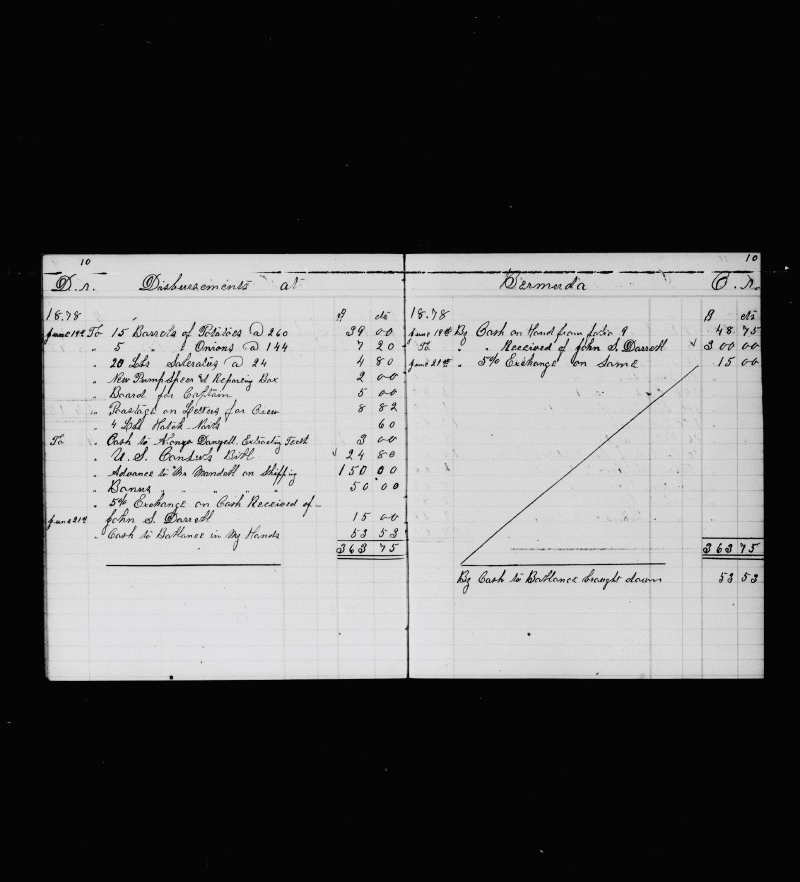 10
D.r. Disbursements at
18.78 $ cts
June 19th To 15 Barrels of Potatoes @ 260 39 00
" 5 " " Onions @ 144 7 20
" 20 Lbs Saleratus @ 24 4 80
" New Pump Speer & Reparing Box 2 00
" Board for Captain 5 00
" Postage on Letters for Crew 8 82
" 4 Lbs Hatch Nails 60
To " Cash to Extracting Teeth 3 00
" U. S. Consuls Bill √ 24 80
" Advance to Mr Mandell on Shipping 150 00
" Bonus " " " 50 00
" 5% Exchange on Cash Received of
June 21st John S. Darrell 15 00
" Cash to Ballance in My Hands 53 53
363 75
10
Bermuda C.r.
18.78 $ cts
June 19th By Cash on Hand from folio 9 48 75
" To " Received of John S. Darrell √ 300 00
June 21st " 5% Exchange on Same 15 00
363 75
By Cash to Ballance braught down 53 53